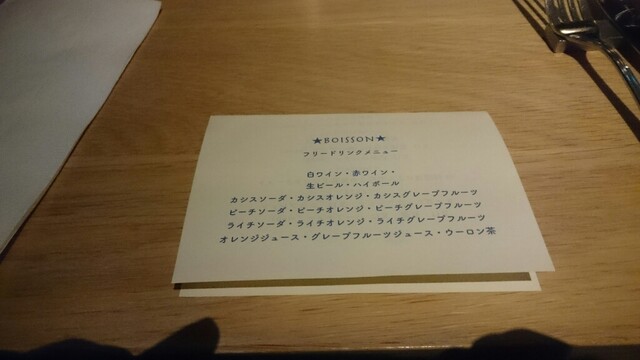 ★BOISSON★
フリードリンクメニュー
白ワイン・赤ワイン・
生ビール・ハイボール
カシスソーダ・カシスオレンジ・カシスグレープフルーツ
ピーチソーダ・ピーチオレンジ・ピーチグレープフルーツ
ライチソーダ・ライチオレンジ・ライチグレープフルーツ
オレンジジュース・グレープフルーツジュース・ウーロン茶